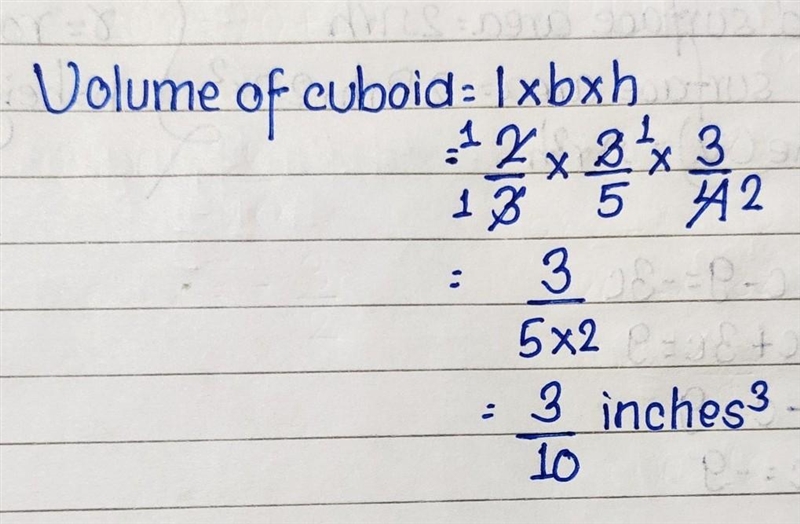 Volume of cuboid = l x b x h
= 1 2/3 1 x 3 1/5 x 3/4 2
= 3/5x2
= 3/10 inches³